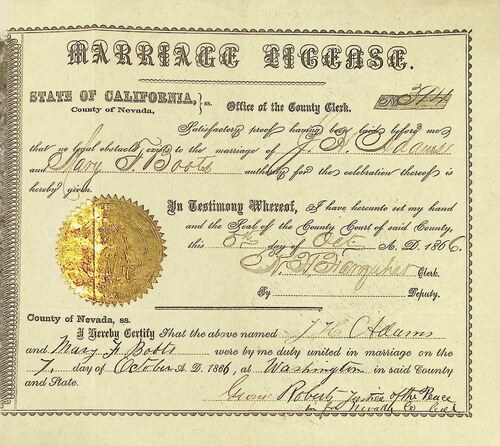 MARRIAGE LICENSE.
STATE OF CALIFORNIA, } ss. Office of the County Clerk. No 344
County of Nevada,
Satisfactory proof having been laid before me
that no legal obstacles exist to the marriage of J. H. Adams
and Mary F. Botts authority for the celebration thereof is
hereby given.
In Testimony Whereof, I have hereunto set my hand
and the Seal of the County Court of said County,
this 5th day of Oct A. D. 1866.
Farquhar Clerk.
By Deputy.
County of Nevada, ss.
I Hereby Certify That the above named J H Adams
and Mary F. Botts were by me duly united in marriage on the
7. day of October A. D. 1866, at Washington in said County
and State.
Roberts Justice of the Peace
in for Nevada Co Cal